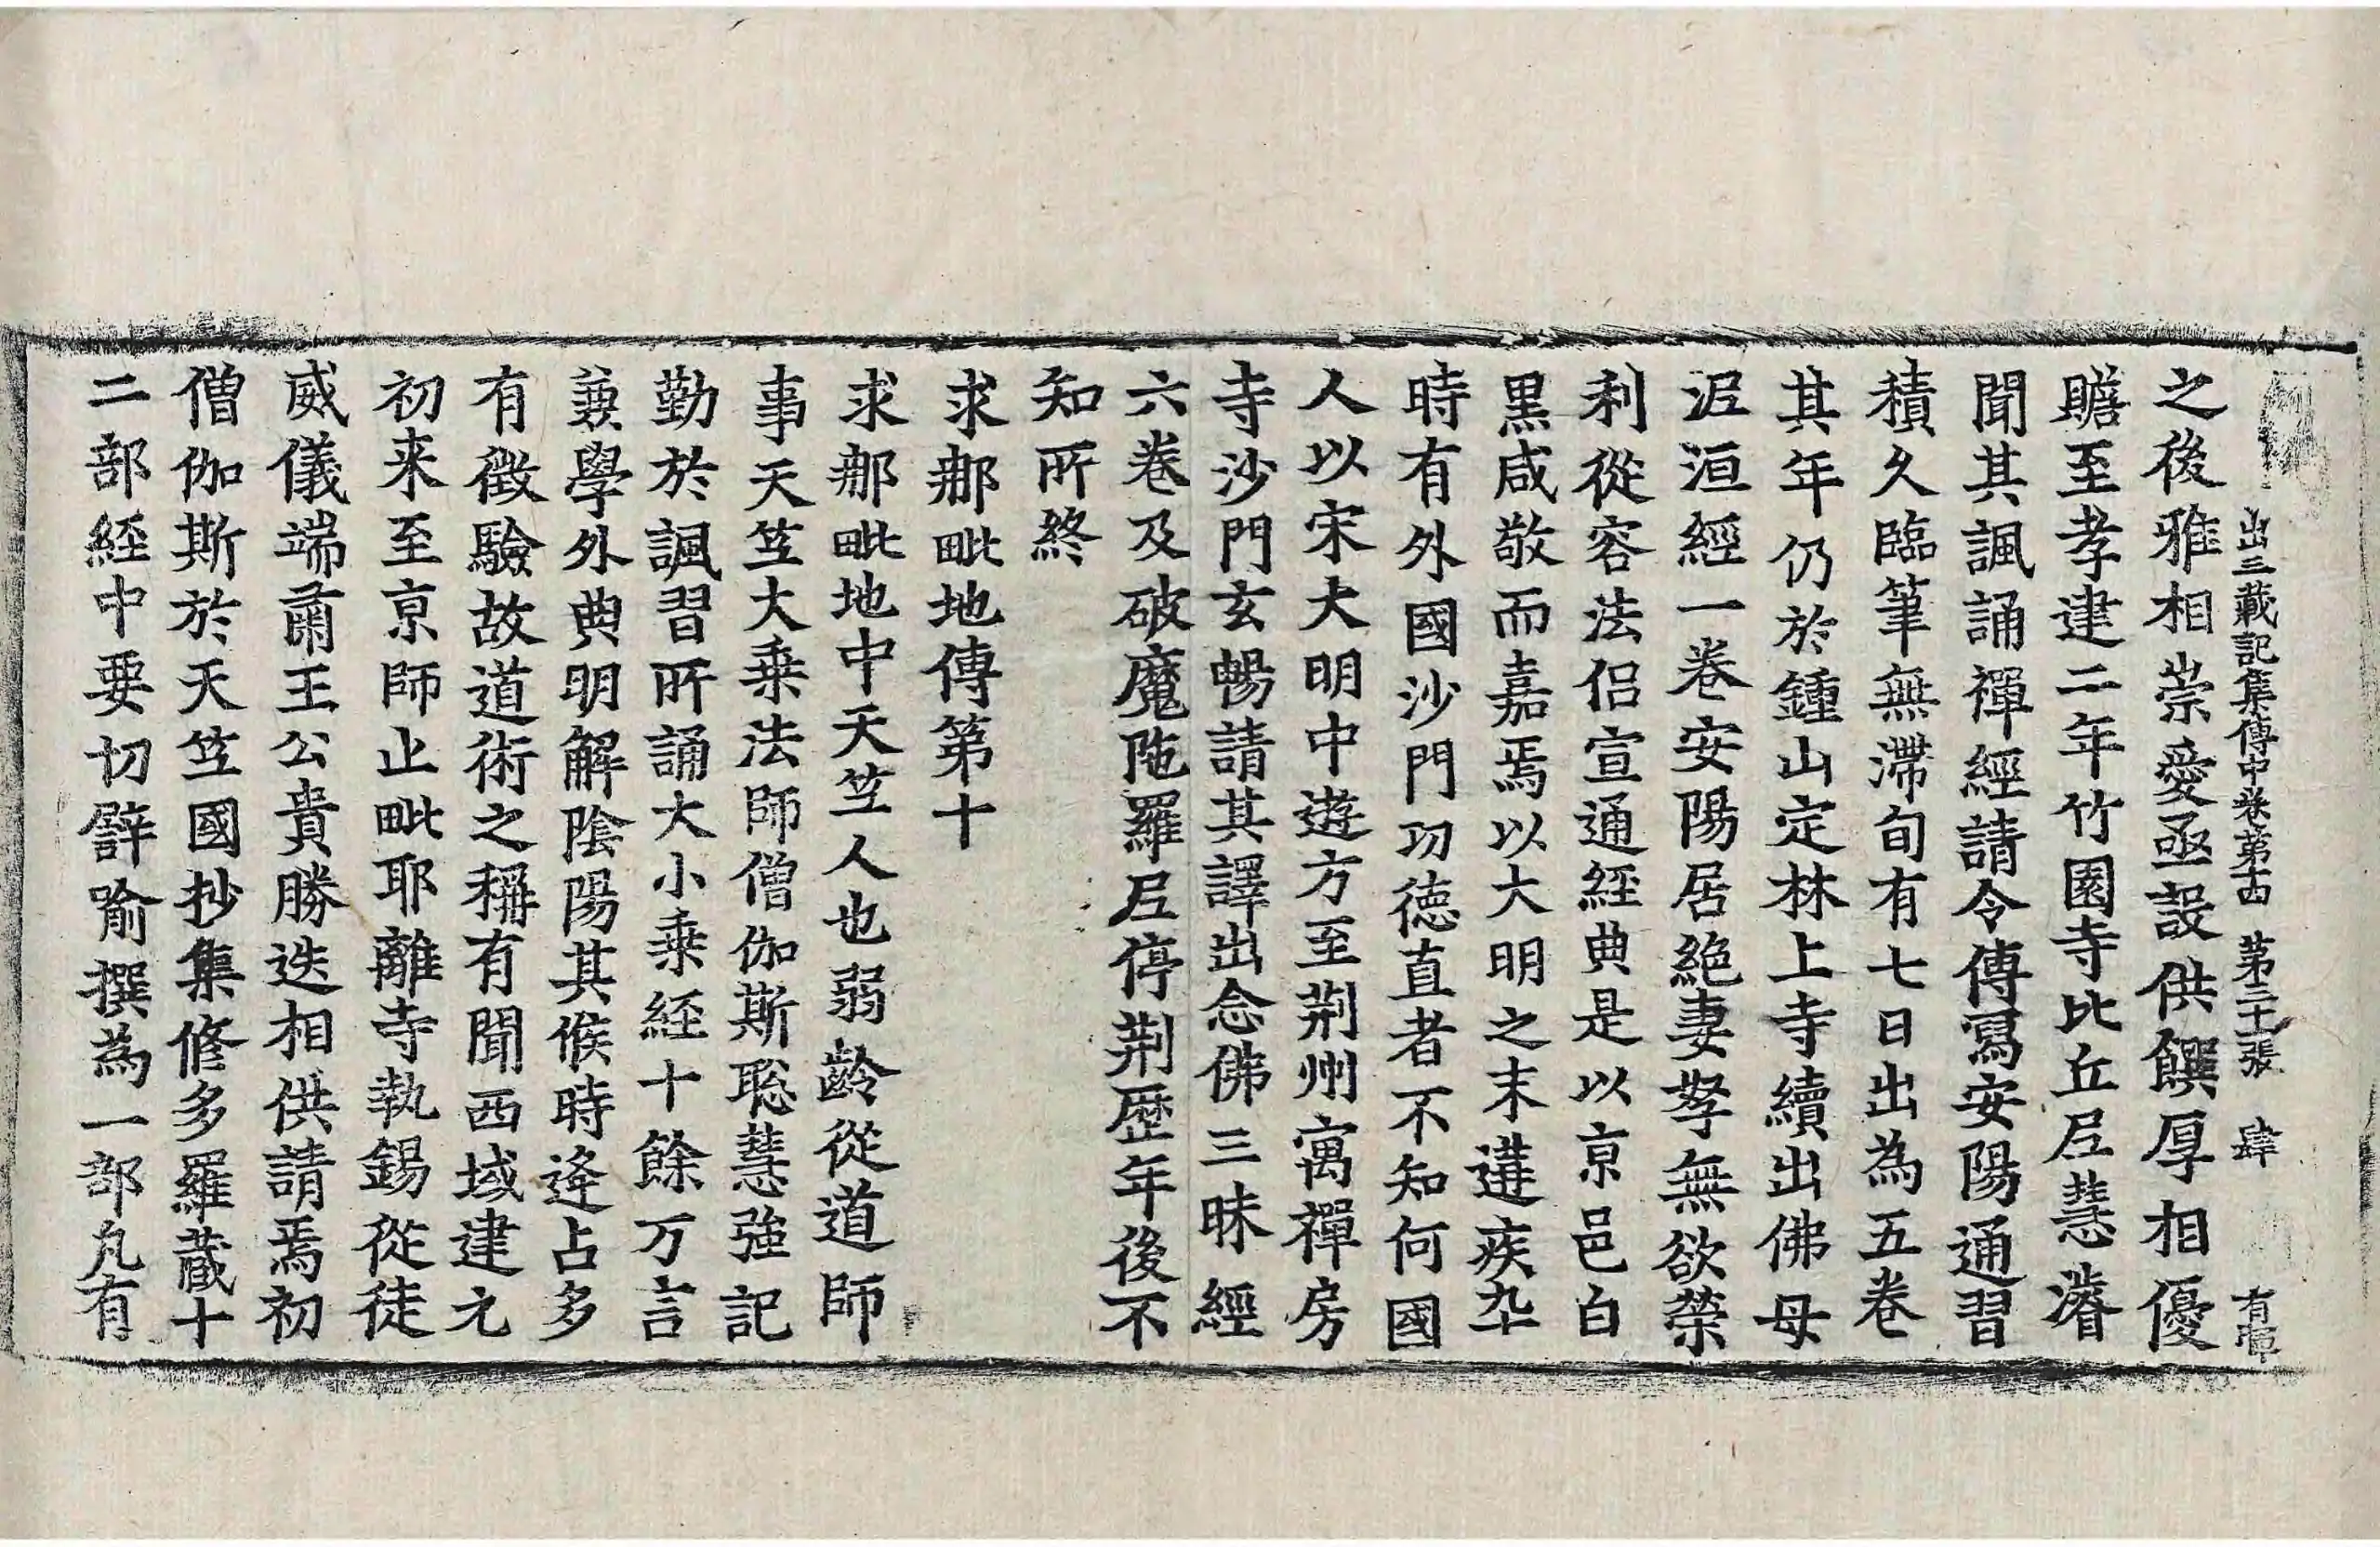 出三藏記集傳中卷第十四　第三十張　肆　有璋
之後雅相崇愛亟設供饌厚相優
贍至孝建二年竹園寺比丘尼慧濬
聞其諷誦禪經請令傳寫安陽通習
積久臨筆無滯旬有七日出為五卷
其年仍於鍾山定林上寺續出佛母
泥洹經一卷安陽居絶妻孥無欲榮
利從容法侶宣通經典是以亰邑白
黒咸敬而嘉焉以大明之末遘疾卒
時有外國沙門㓛德直者不知何國
人以宋大明中遊方至荆州寓禪房
寺沙門玄暢請其譯出念佛三昧經
六卷及破魔陁羅尼停荆歴年後不
知所終
求那毗地傳第十
求那毗地中天笁人也弱齡從道師
事天笁大乗法師僧伽斯聡慧強記
勤於諷習所誦大小乗経十餘万言
兼學外典明解陰陽其候時逢占多
有徴驗故道術之稱有聞西域建元
初来至亰師止毗耶離寺執錫從徒
威儀端肅王公貴勝迭相供請焉初
僧伽斯於天笁國抄集修多羅蔵十
二部経中要切譬喻撰為一部凡有